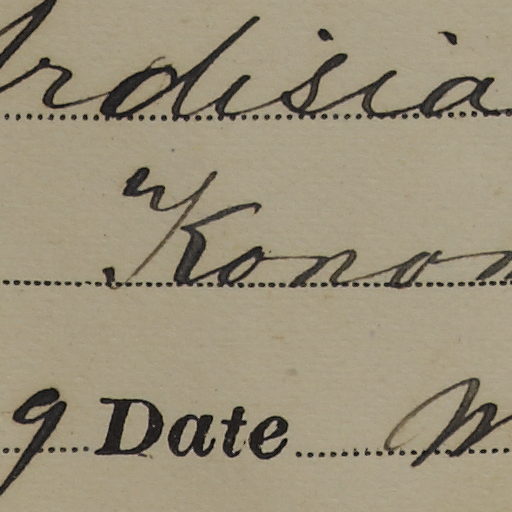 Ardisia
Konom
9 Date M